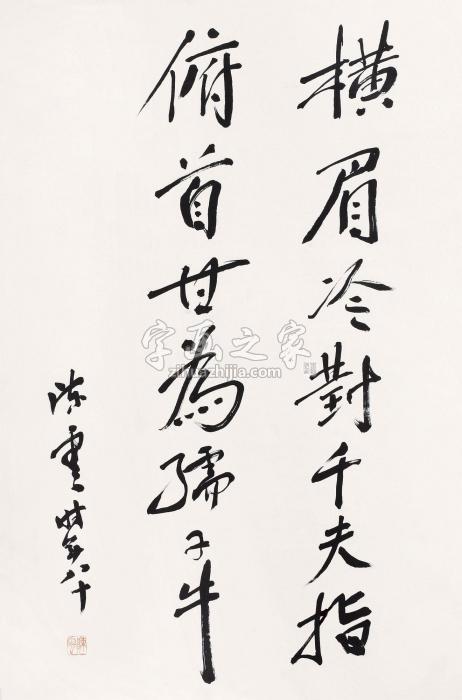 横眉冷對千夫指
俯首甘為孺子牛
陳雲時年八十
字画之家
zihuazhijia.com